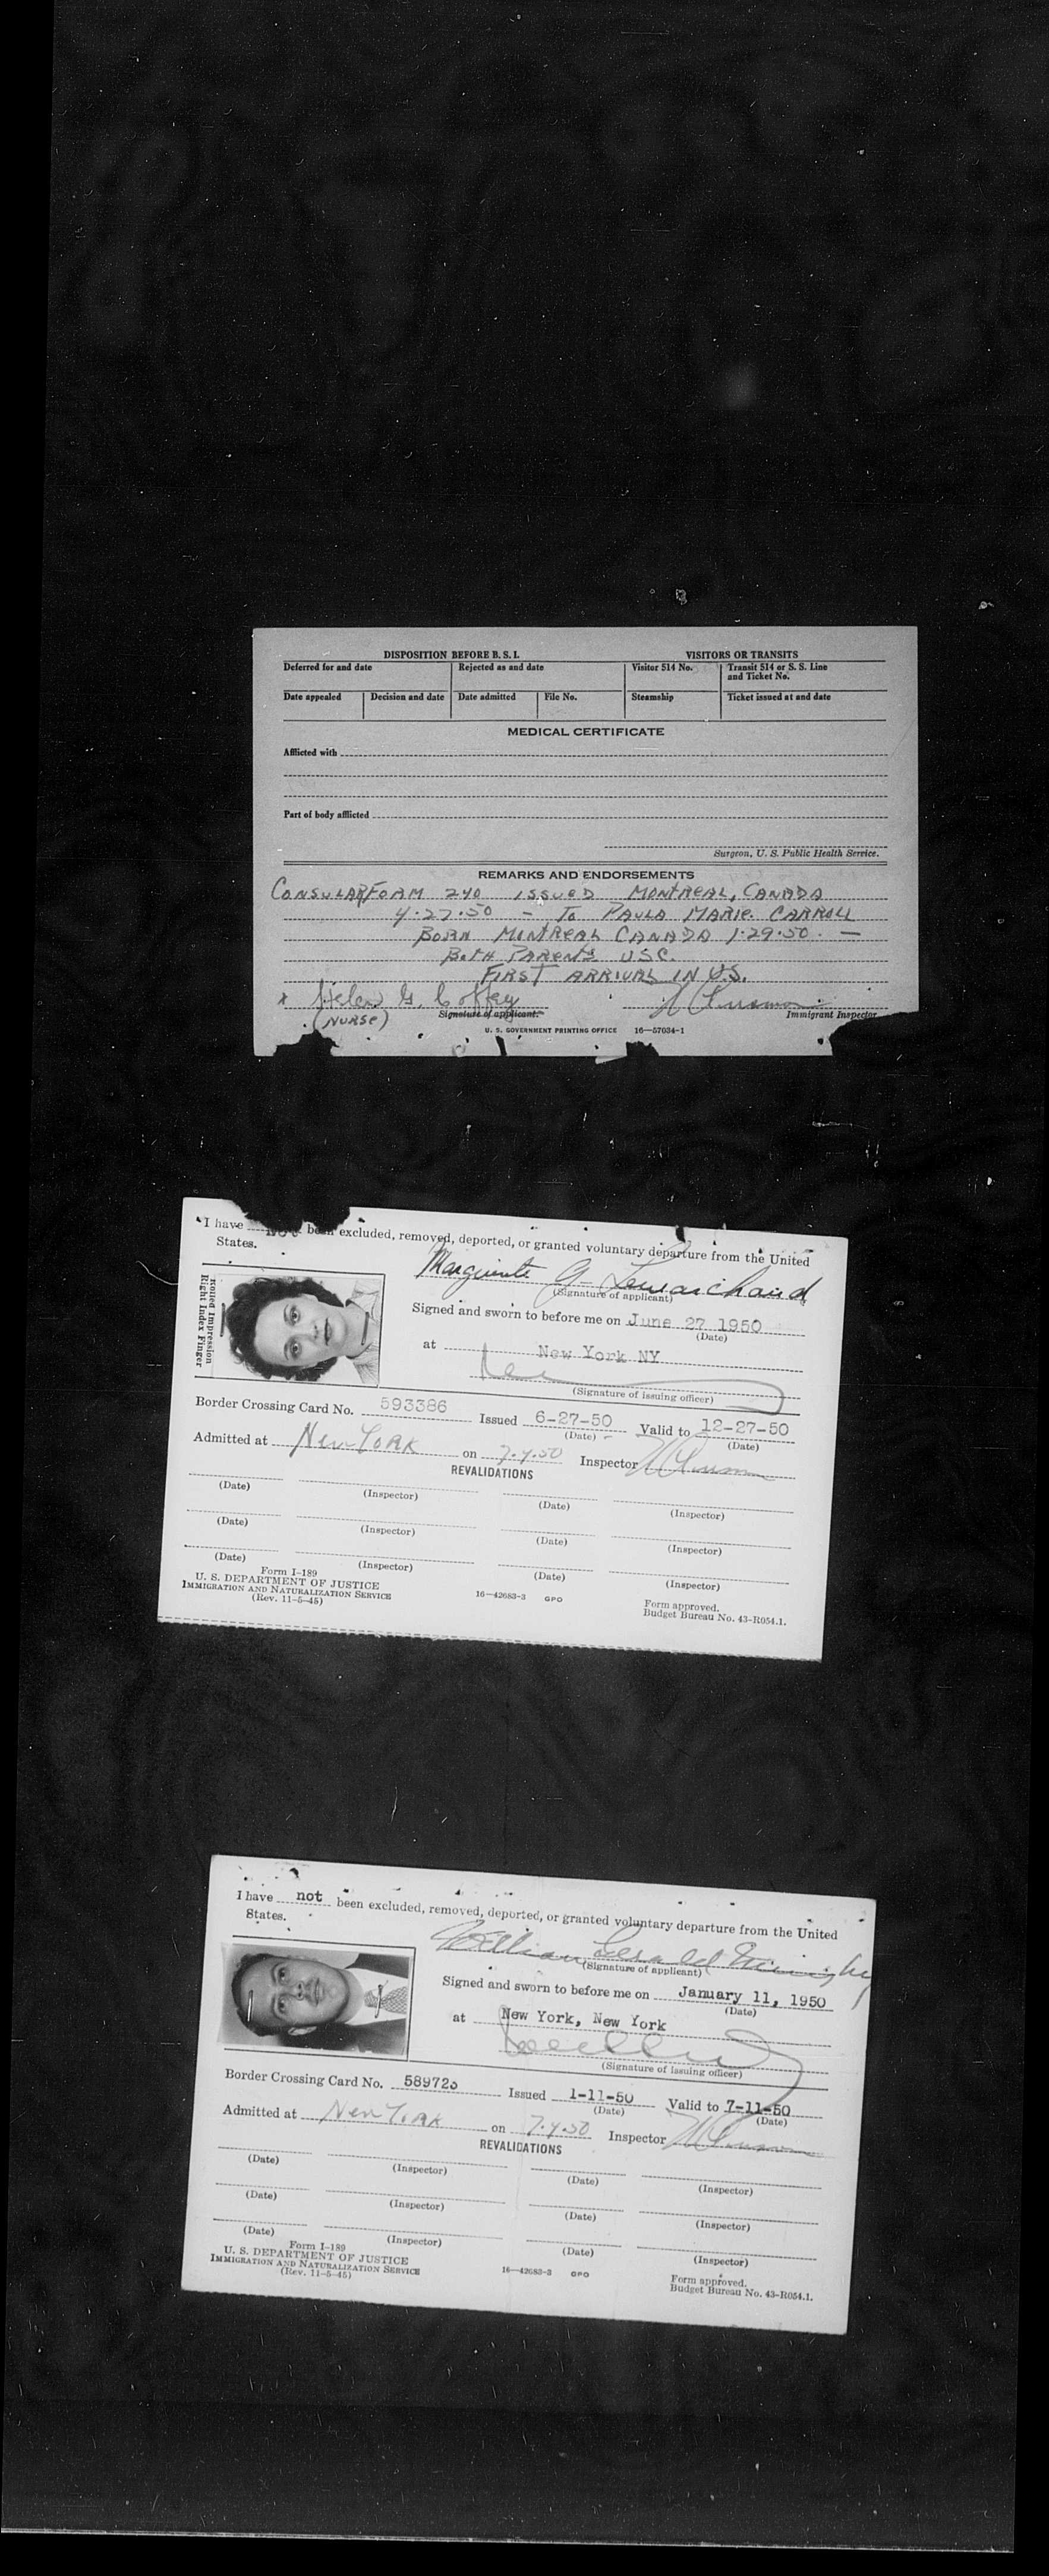 DISPOSITION BEFORE B. S. I.    VISITORS OR TRANSITS
Deferred for and date    Rejected as and date    Visitor 514 No.    Transit 514 or S. S. Line
and Ticket No.
Date appealed    Decision and date    Date admitted    File No.    Steamship    Ticket issued at and date
MEDICAL CERTIFICATE
Afflicted with
Part of body afflicted
Surgeon, U. S. Public Health Service.
REMARKS AND ENDORSEMENTS
CONSULAR FORM 240 ISSUED MONTREAL, CANADA
4.27.50 - To PAULA MARIE CARROLL
BORN MONTREAL CANADA 1.29.50. —
BOTH PARENTS USC.
FIRST ARRIVAL IN U.S.
x Helen G. Coffey
(NURSE)    Signature of applicant.    Immigrant Inspector
U. S. GOVERNMENT PRINTING OFFICE    16—57034-1
I have not been excluded, removed, deported, or granted voluntary departure from the United
States.
Marguerite G. Lemarchand
(Signature of applicant)
Rolled Impression
Right Index Finger
Signed and sworn to before me on June 27 1950
(Date)
at New York NY
(Signature of issuing officer)
Border Crossing Card No. 593386 Issued 6-27-50 Valid to 12-27-50
(Date)    (Date)
Admitted at New York on 7.4.50 Inspector
REVALIDATIONS
(Date)    (Inspector)    (Date)    (Inspector)
(Date)    (Inspector)    (Date)    (Inspector)
(Date)    (Inspector)    (Date)    (Inspector)
Form I-189
U. S. DEPARTMENT OF JUSTICE
IMMIGRATION AND NATURALIZATION SERVICE
(Rev. 11-5-45)
16—42683-3    GPO
Form approved.
Budget Bureau No. 43-R054.1.
I have not been excluded, removed, deported, or granted voluntary departure from the United
States.
William Gerald
(Signature of applicant)
Signed and sworn to before me on January 11, 1950
(Date)
at New York, New York
(Signature of issuing officer)
Border Crossing Card No. 589723 Issued 1-11-50 Valid to 7-11-50
(Date)    (Date)
Admitted at New York on 7.4.50 Inspector
REVALIDATIONS
(Date)    (Inspector)    (Date)    (Inspector)
(Date)    (Inspector)    (Date)    (Inspector)
(Date)    (Inspector)    (Date)    (Inspector)
Form I-189
U. S. DEPARTMENT OF JUSTICE
IMMIGRATION AND NATURALIZATION SERVICE
(Rev. 11-5-45)
16—42683-3    GPO
Form approved.
Budget Bureau No. 43-R054.1.